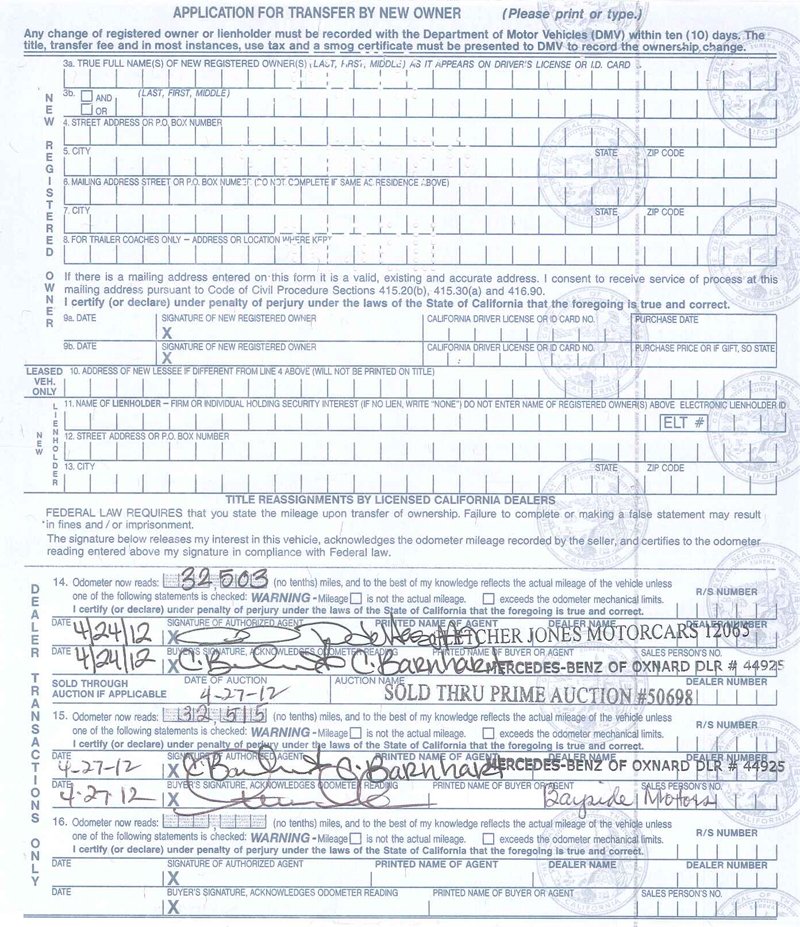 APPLICATION FOR TRANSFER BY NEW OWNER (Please print or type.)
Any change of registered owner or lienholder must be recorded with the Department of Motor Vehicles (DMV) within ten (10) days. The
title, transfer fee and in most instances, use tax and a smog certificate must be presented to DMV to record the ownership change.
3a. TRUE FULL NAME(S) OF NEW REGISTERED OWNER(S) (LAST, FIRST, MIDDLE) AS IT APPEARS ON DRIVER'S LICENSE OR I.D. CARD
3b. AND (LAST, FIRST, MIDDLE)
OR
NEW REGISTERED OWNER
4. STREET ADDRESS OR P.O. BOX NUMBER
5. CITY STATE ZIP CODE
6. MAILING ADDRESS STREET OR P.O. BOX NUMBER (DO NOT COMPLETE IF SAME AS RESIDENCE ABOVE)
7. CITY STATE ZIP CODE
8. FOR TRAILER COACHES ONLY – ADDRESS OR LOCATION WHERE KEPT
If there is a mailing address entered on this form it is a valid, existing and accurate address. I consent to receive service of process at this
mailing address pursuant to Code of Civil Procedure Sections 415.20(b), 415.30(a) and 416.90.
I certify (or declare) under penalty of perjury under the laws of the State of California that the foregoing is true and correct.
9a. DATE SIGNATURE OF NEW REGISTERED OWNER CALIFORNIA DRIVER LICENSE OR ID CARD NO. PURCHASE DATE
X
9b. DATE SIGNATURE OF NEW REGISTERED OWNER CALIFORNIA DRIVER LICENSE OR ID CARD NO. PURCHASE PRICE OR IF GIFT, SO STATE
X
LEASED VEH. ONLY 10. ADDRESS OF NEW LESSEE IF DIFFERENT FROM LINE 4 ABOVE (WILL NOT BE PRINTED ON TITLE)
NEW LIENHOLDER
11. NAME OF LIENHOLDER – FIRM OR INDIVIDUAL HOLDING SECURITY INTEREST (IF NO LIEN, WRITE "NONE") DO NOT ENTER NAME OF REGISTERED OWNER(S) ABOVE ELECTRONIC LIENHOLDER ID
ELT #
12. STREET ADDRESS OR P.O. BOX NUMBER
13. CITY STATE ZIP CODE
TITLE REASSIGNMENTS BY LICENSED CALIFORNIA DEALERS
FEDERAL LAW REQUIRES that you state the mileage upon transfer of ownership. Failure to complete or making a false statement may result
in fines and / or imprisonment.
The signature below releases my interest in this vehicle, acknowledges the odometer mileage recorded by the seller, and certifies to the odometer
reading entered above my signature in compliance with Federal law.
DEALER TRANSACTIONS ONLY
14. Odometer now reads: 32503 (no tenths) miles, and to the best of my knowledge reflects the actual mileage of the vehicle unless
one of the following statements is checked: WARNING - Mileage is not the actual mileage. exceeds the odometer mechanical limits. R/S NUMBER
I certify (or declare) under penalty of perjury under the laws of the State of California that the foregoing is true and correct.
DATE SIGNATURE OF AUTHORIZED AGENT PRINTED NAME OF AGENT DEALER NAME DEALER NUMBER
4/24/12 X FLETCHER JONES MOTORCARS 12065
DATE BUYER'S SIGNATURE, ACKNOWLEDGES ODOMETER READING PRINTED NAME OF BUYER OR AGENT SALES PERSON'S NO.
4/24/12 X C. Barnhart C. BARNHART MERCEDES-BENZ OF OXNARD DLR # 44925
SOLD THROUGH DATE OF AUCTION AUCTION NAME DEALER NUMBER
AUCTION IF APPLICABLE 4-27-12 SOLD THRU PRIME AUCTION #50698
15. Odometer now reads: 32515 (no tenths) miles, and to the best of my knowledge reflects the actual mileage of the vehicle unless
one of the following statements is checked: WARNING - Mileage is not the actual mileage. exceeds the odometer mechanical limits. R/S NUMBER
I certify (or declare) under penalty of perjury under the laws of the State of California that the foregoing is true and correct.
DATE SIGNATURE OF AUTHORIZED AGENT PRINTED NAME OF AGENT DEALER NAME DEALER NUMBER
4-27-12 X C. Barnhart C. BARNHART MERCEDES-BENZ OF OXNARD DLR # 44925
DATE BUYER'S SIGNATURE, ACKNOWLEDGES ODOMETER READING PRINTED NAME OF BUYER OR AGENT SALES PERSON'S NO.
4-27-12 X Bayside Motors
16. Odometer now reads: (no tenths) miles, and to the best of my knowledge reflects the actual mileage of the vehicle unless
one of the following statements is checked: WARNING - Mileage is not the actual mileage. exceeds the odometer mechanical limits. R/S NUMBER
I certify (or declare) under penalty of perjury under the laws of the State of California that the foregoing is true and correct.
DATE SIGNATURE OF AUTHORIZED AGENT PRINTED NAME OF AGENT DEALER NAME DEALER NUMBER
X
DATE BUYER'S SIGNATURE, ACKNOWLEDGES ODOMETER READING PRINTED NAME OF BUYER OR AGENT SALES PERSON'S NO.
X